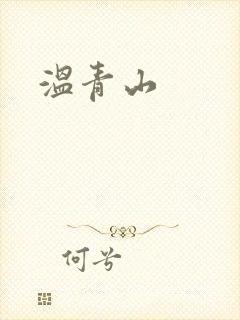 温青山
何兮